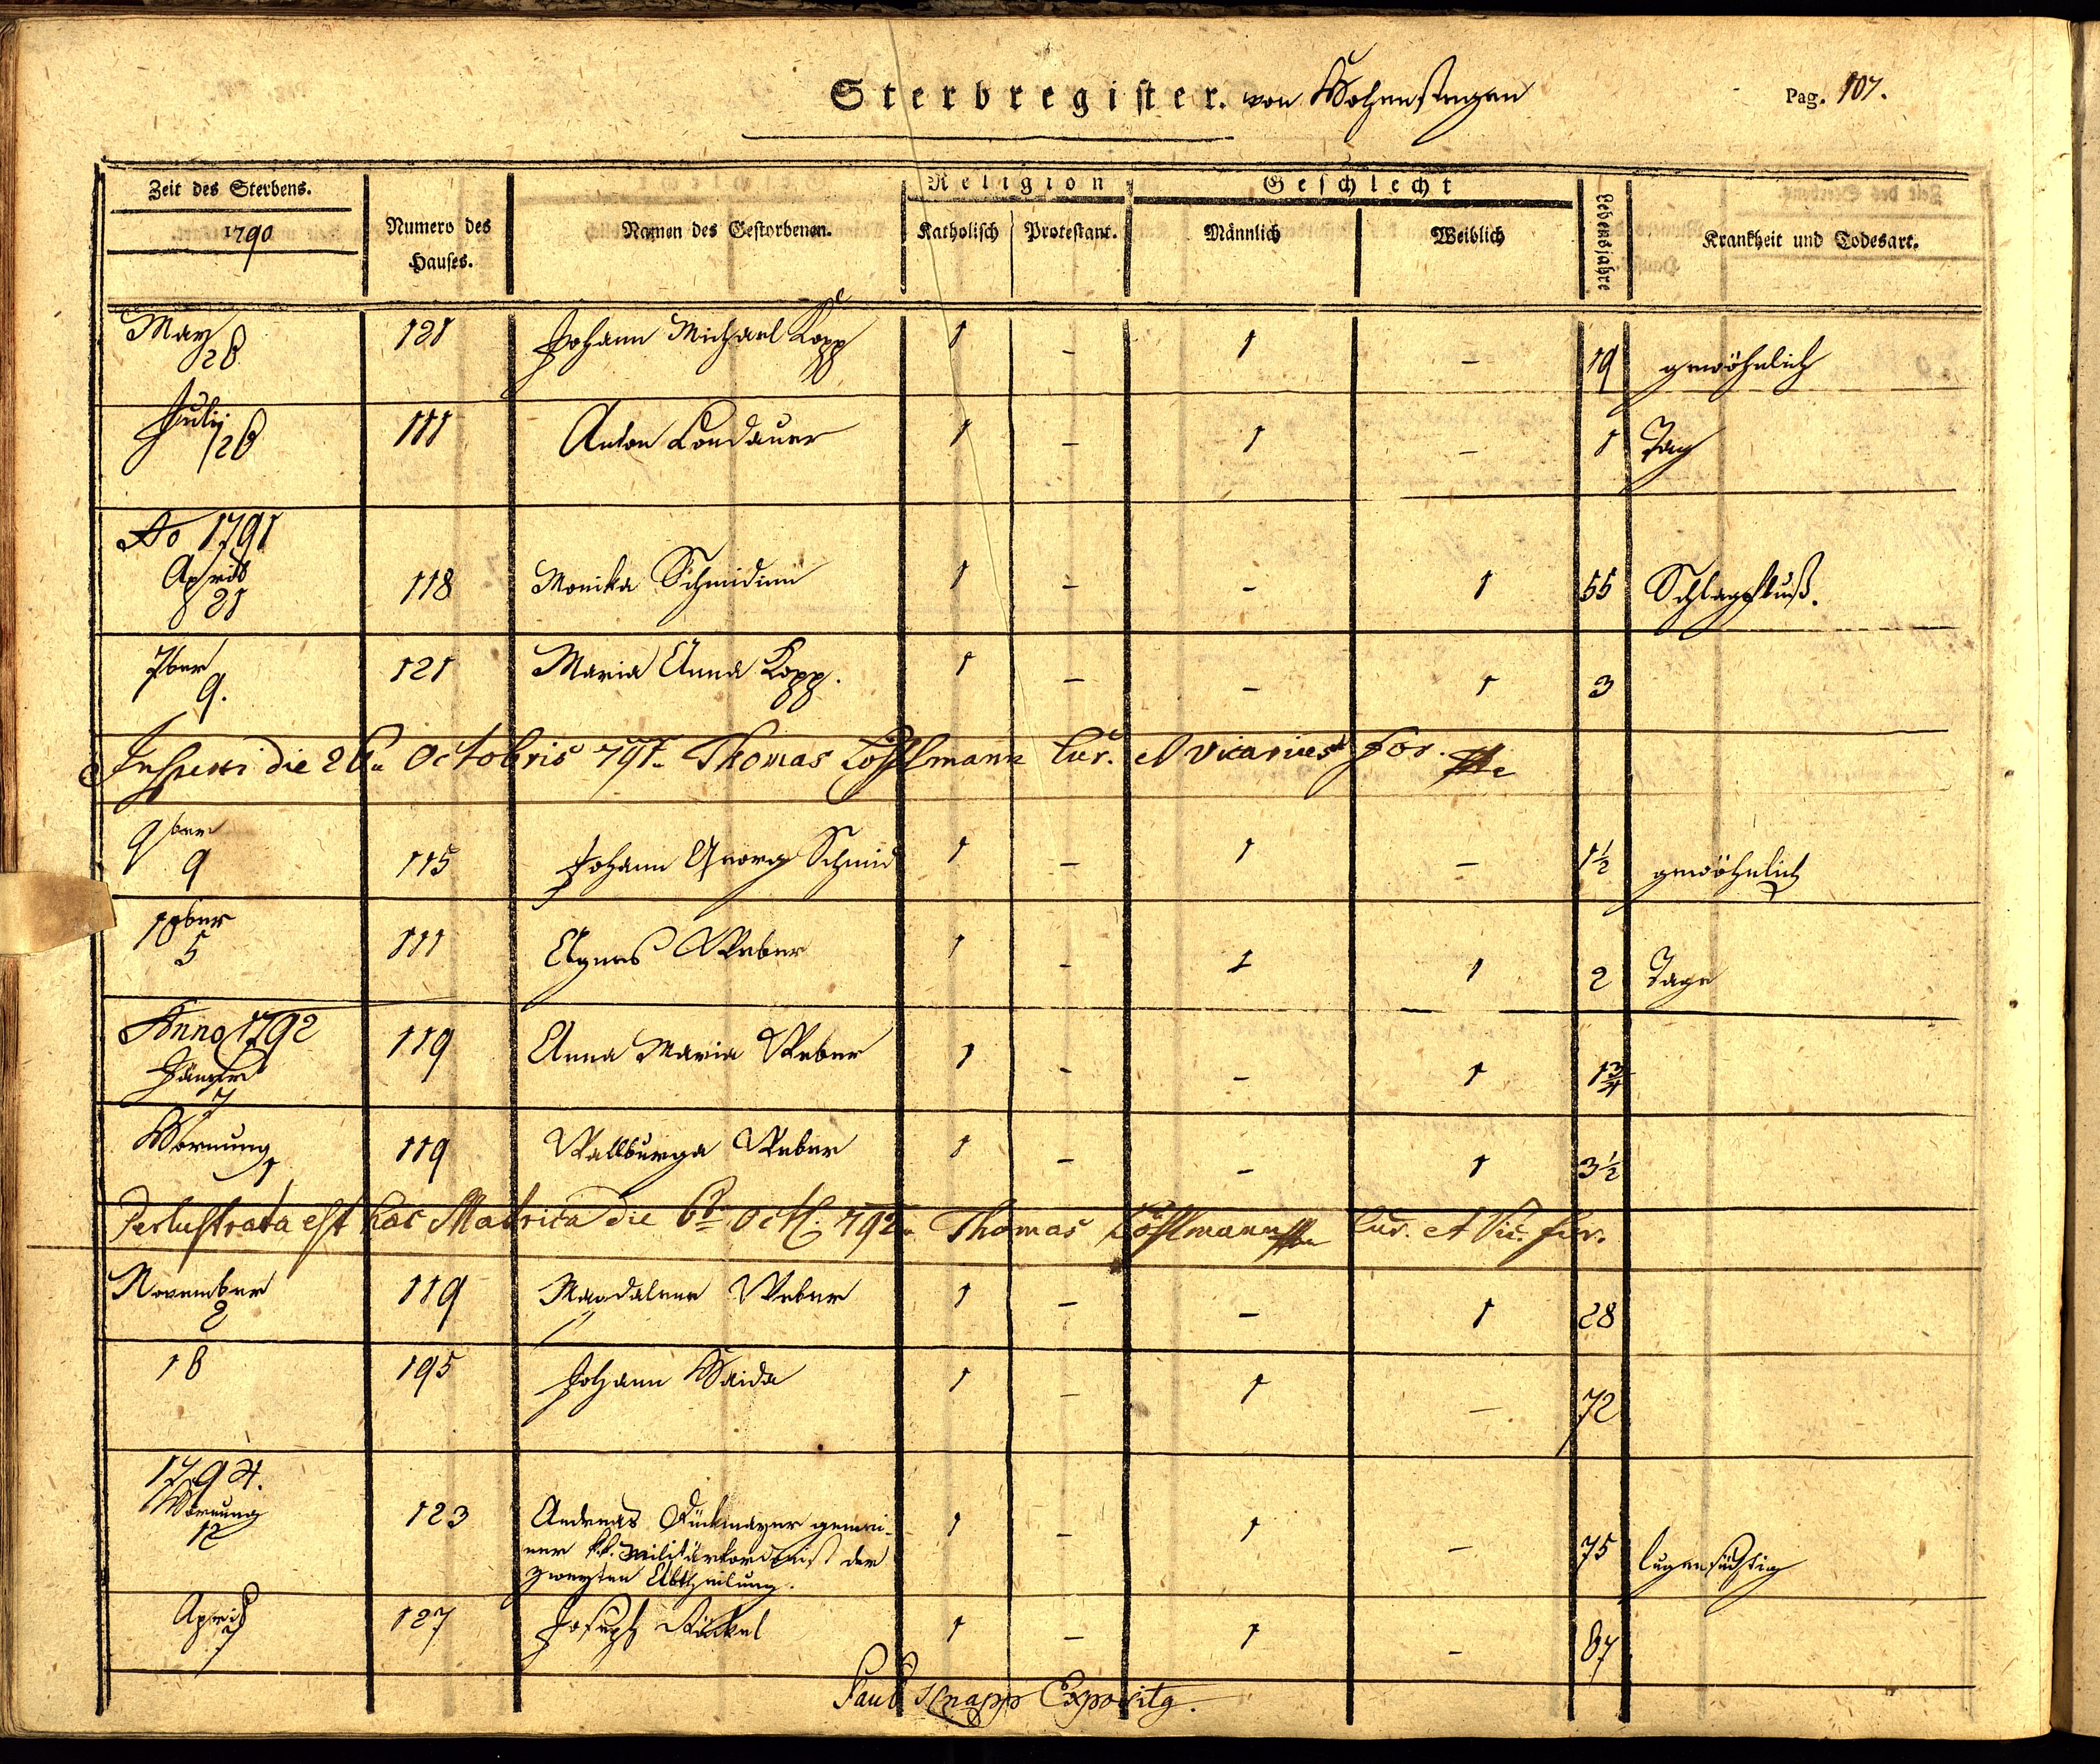 Sterbregister. von Hohenstegen
Pag. 107.
Zeit des Sterbens.
1790
Numero des Hauses.
Namen des Gestorbenen.
Religion
Katholisch
Protestant.
Geschlecht
Männlich
Weiblich
Lebensjahre
Krankheit und Todesart.
May 26 121 Johann Michael Kopp 1 - 1 - 19 gewöhnlich
Julij 26 111 Anton Landauer 1 - 1 - 1 Tag
Ao 1791
April 21 118 Monika Schmidinn 1 - - 1 55 Schlagfluß.
7ber 9. 121 Maria Anna Kopp. 1 - - 1 3
Inspexi die 26a Octobris 791. Thomas Cur. et Vicarius For.
9ber 9 115 Johann Georg Schmid 1 - 1 - 1½ gewöhnlich
10ber 5 111 Agnes Weber 1 - 1 1 2 Tage
Anno 1792
Jäner 7 119 Anna Maria Weber 1 - - 1 1¾
Hornung 1 119 Wallburga Weber 1 - - 1 3½
Perlustrata est haec Matrica die 6a Octb. 792. Thomas Cur. et Vic. For.
November 2 119 Magdalena Weber 1 - - 1 28
18 195 Johann Haida 1 - 1 - 72
1794.
Hornung 12 123 Andreas gemei-
ner k.k. Militärkordonist der
zweyten Abtheilung. 1 - 1 - 75 lugensüchtig
April 7 127 Joseph 1 - 1 - 67
Paul Knapp Exposity.